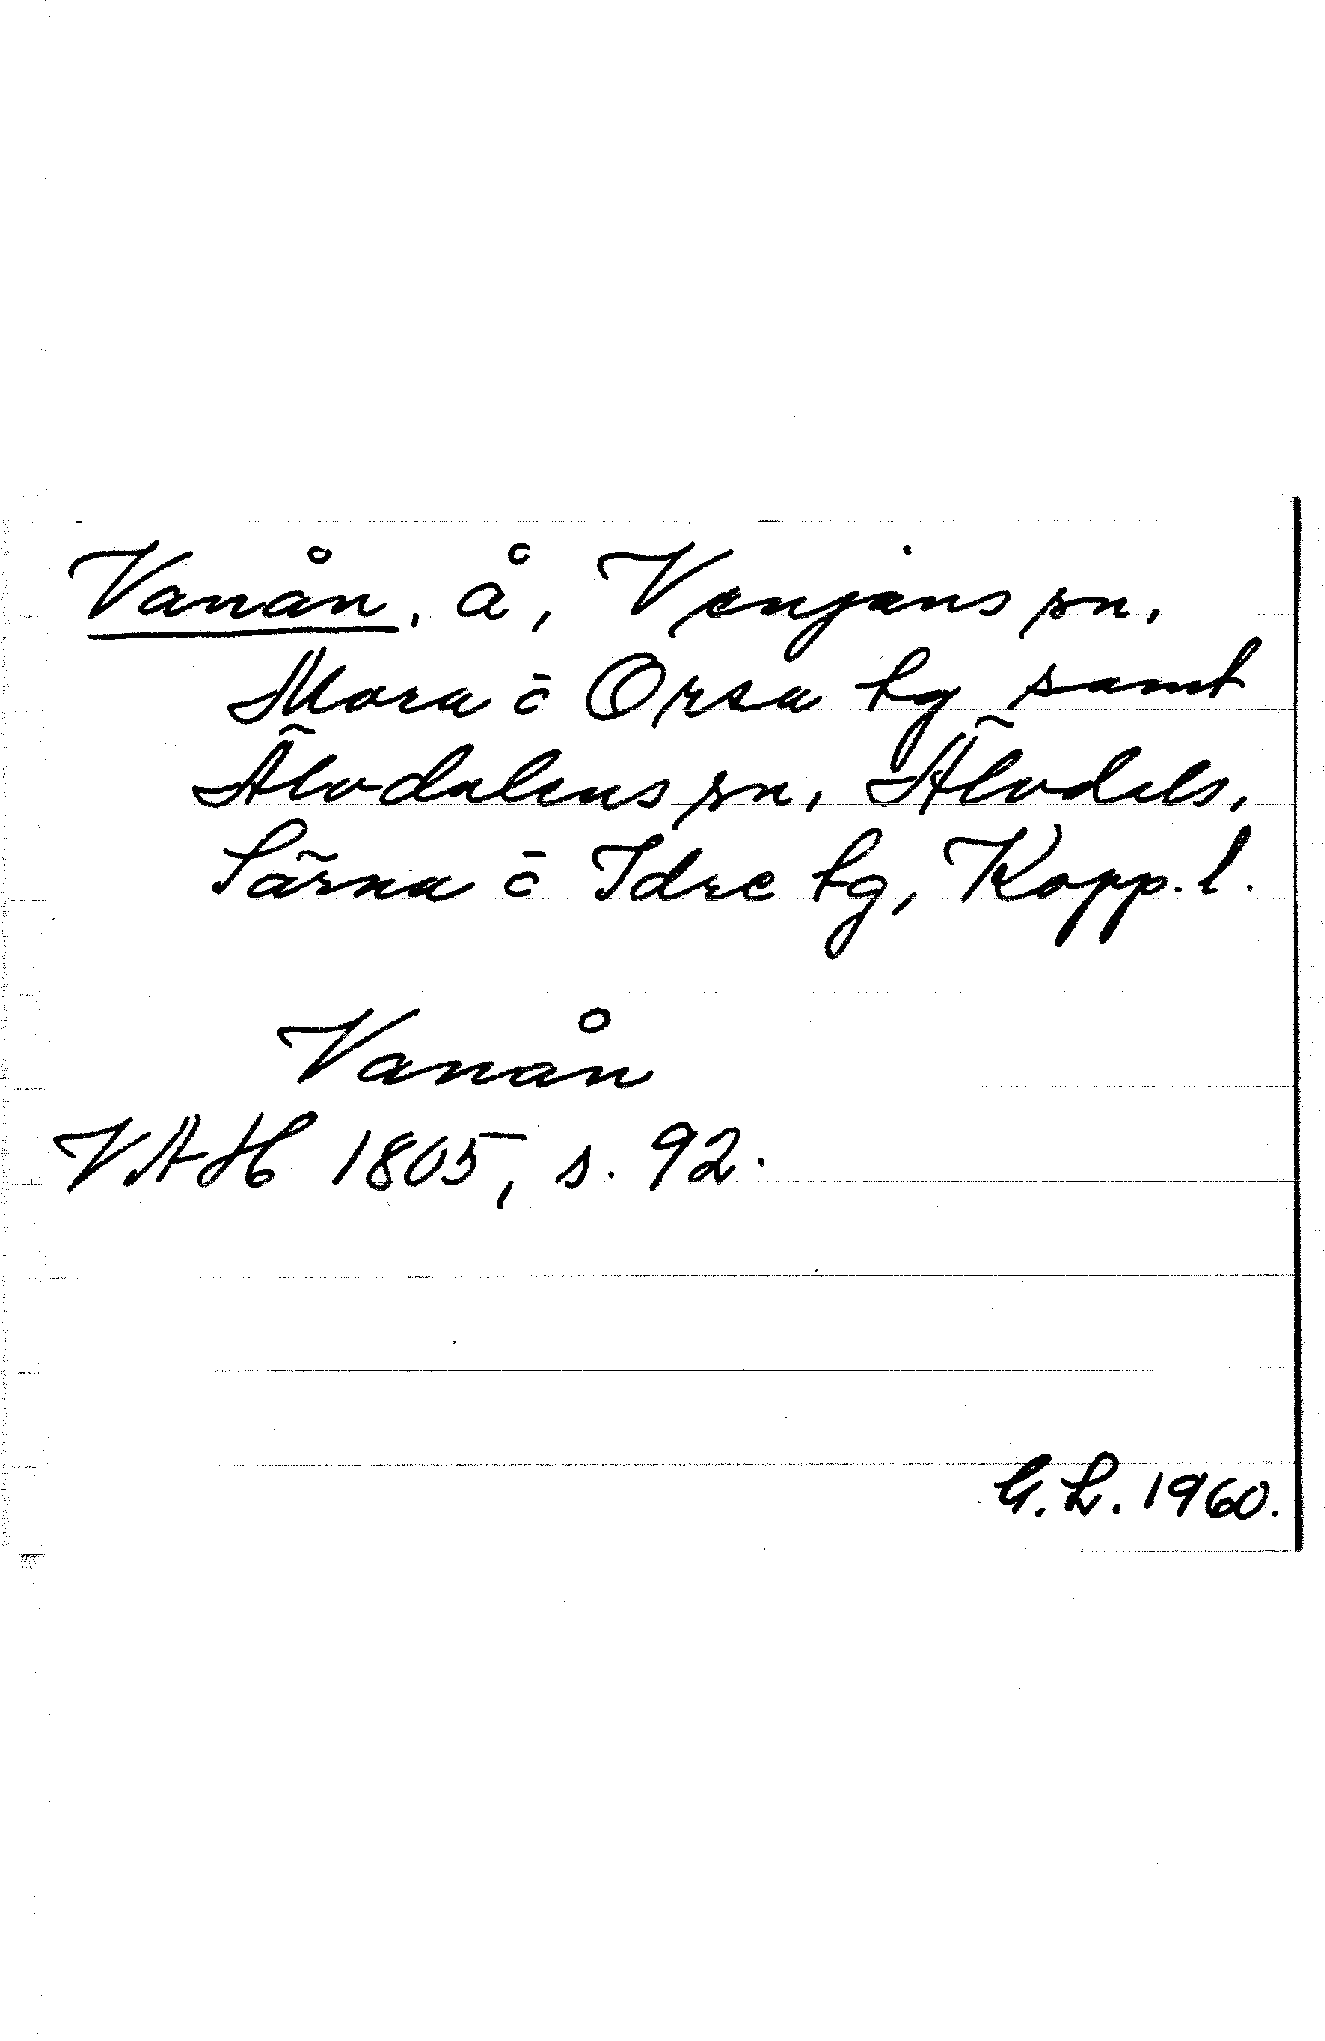 Vanån, å, Venjans sn,
Mora o Orsa tg samt
Älvdalens sn, Älvdals,
Särna o Idre tg, Kopp. l.
Vanån
VAH 1805, s. 92.
G.L. 1960.